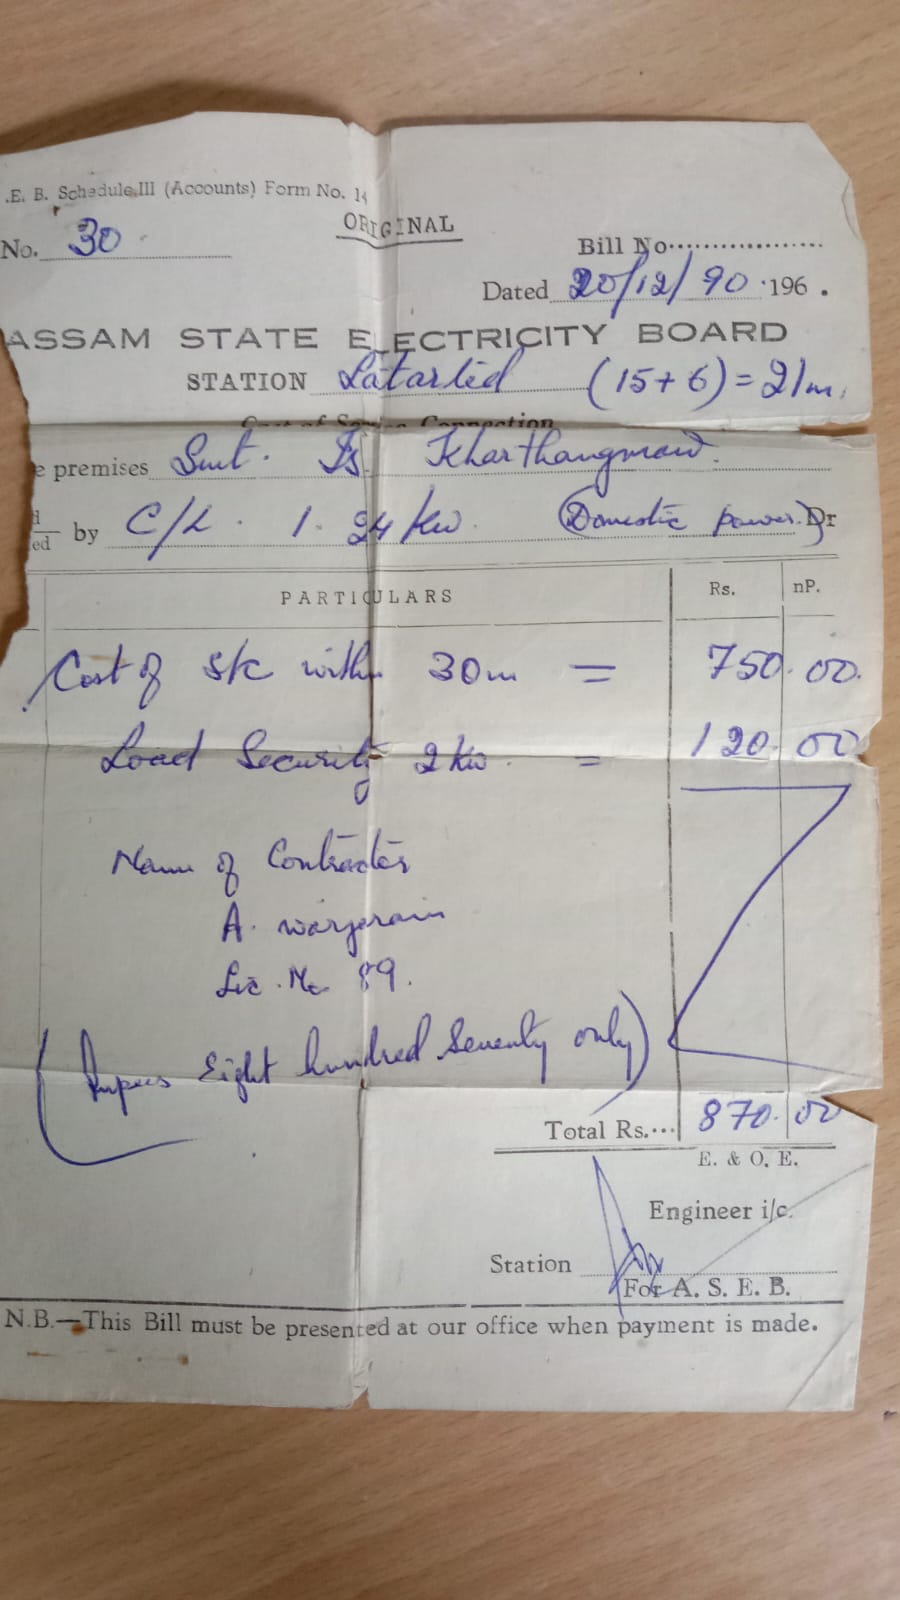 .E. B. Schedule III (Accounts) Form No. 14
ORIGINAL
No. 30
Bill No...................
Dated 20/12/90 196 .
ASSAM STATE ELECTRICITY BOARD
STATION (15+6) = 21m.
Cost of Service Connection
e premises Smt.
ed by C/L. 1.24 kw. (Domestic power) Dr
PARTICULARS Rs. nP.
Cost of S/c within 30m = 750.00.
Load Security 2 kw. = 120.00
Name of Contractor
A.
Lic. No 89.
(Rupees Eight hundred Seventy only)
Total Rs.... 870.00
E. & O. E.
Engineer i/c.
Station
For A. S. E. B.
N.B.—This Bill must be presented at our office when payment is made.